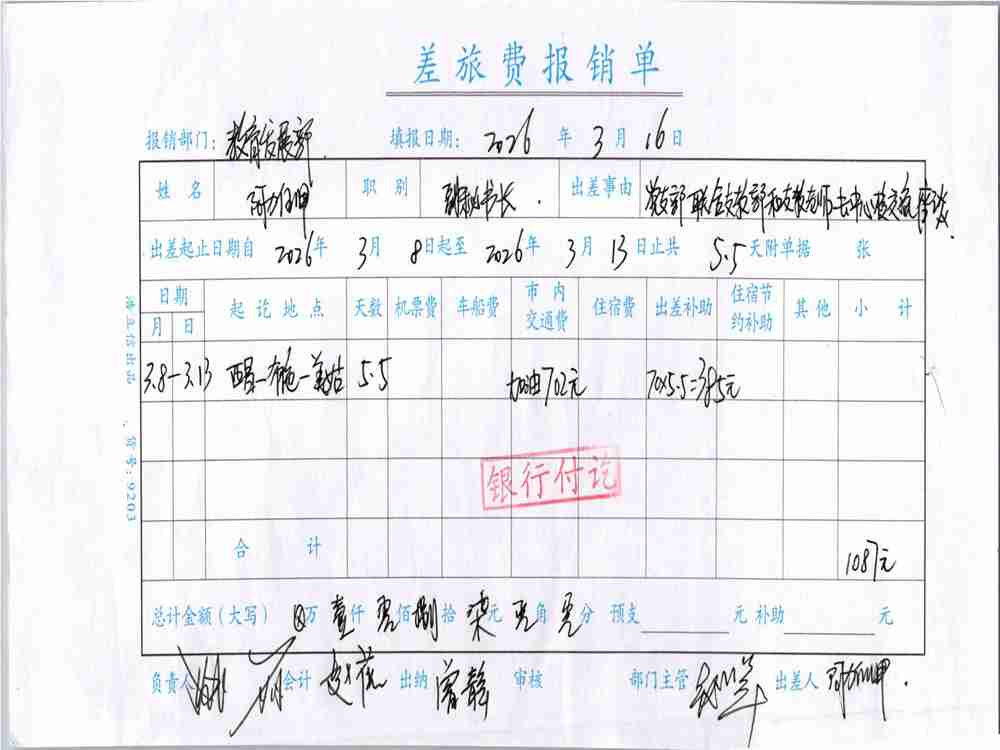 差旅费报销单
报销部门: 教育发展部. 填报日期: 2026 年 3 月 16 日
姓 名 职 别 副秘书长. 出差事由
出差起止日期自 2026 年 3 月 8 日起至 2026 年 3 月 13 日止共 5.5 天附单据 张
日期 起 讫 地 点 天数 机票费 车船费 市 内 交通费 住宿费 出差补助 住宿节 约补助 其 他 小 计
月 日
3.8-3.13 西昌-布拖-美姑 5.5 加油702元 70×5.5=385元
银行付讫
合 计 1087元
总计金额(大写) ⊗万 壹仟 零佰 捌拾 柒元 零角 零分 预支 元 补助 元
负责人 会计 出纳 曾静 审核 部门主管 出差人
货号:9203